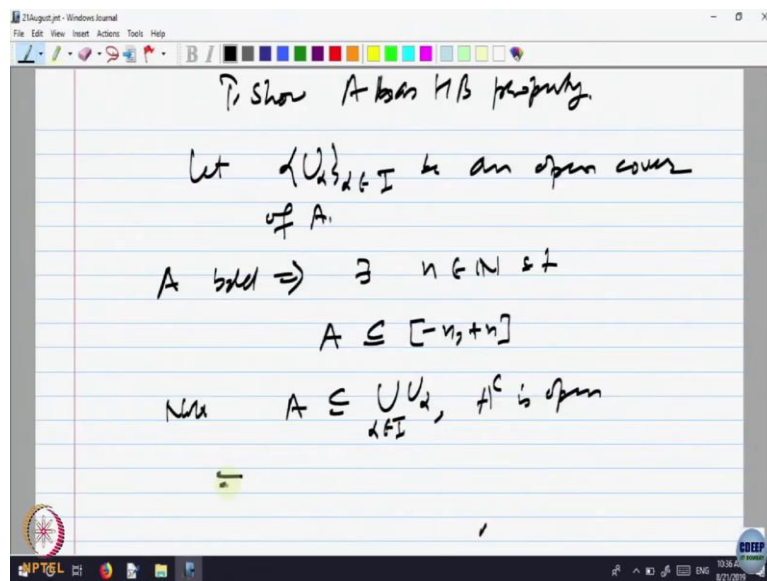 21August.jnt - Windows Journal
File Edit View Insert Actions Tools Help
B I
T, Show A has HB property.
Let {Uα}α∈I be an open cover
of A.
A bdd ⇒ ∃ n ∈ ℕ s t
A ⊆ [-n, +n]
Note A ⊆ ⋃α∈I Uα, A^c is open
NPTEL
CDEEP
ENG
8/21/2019